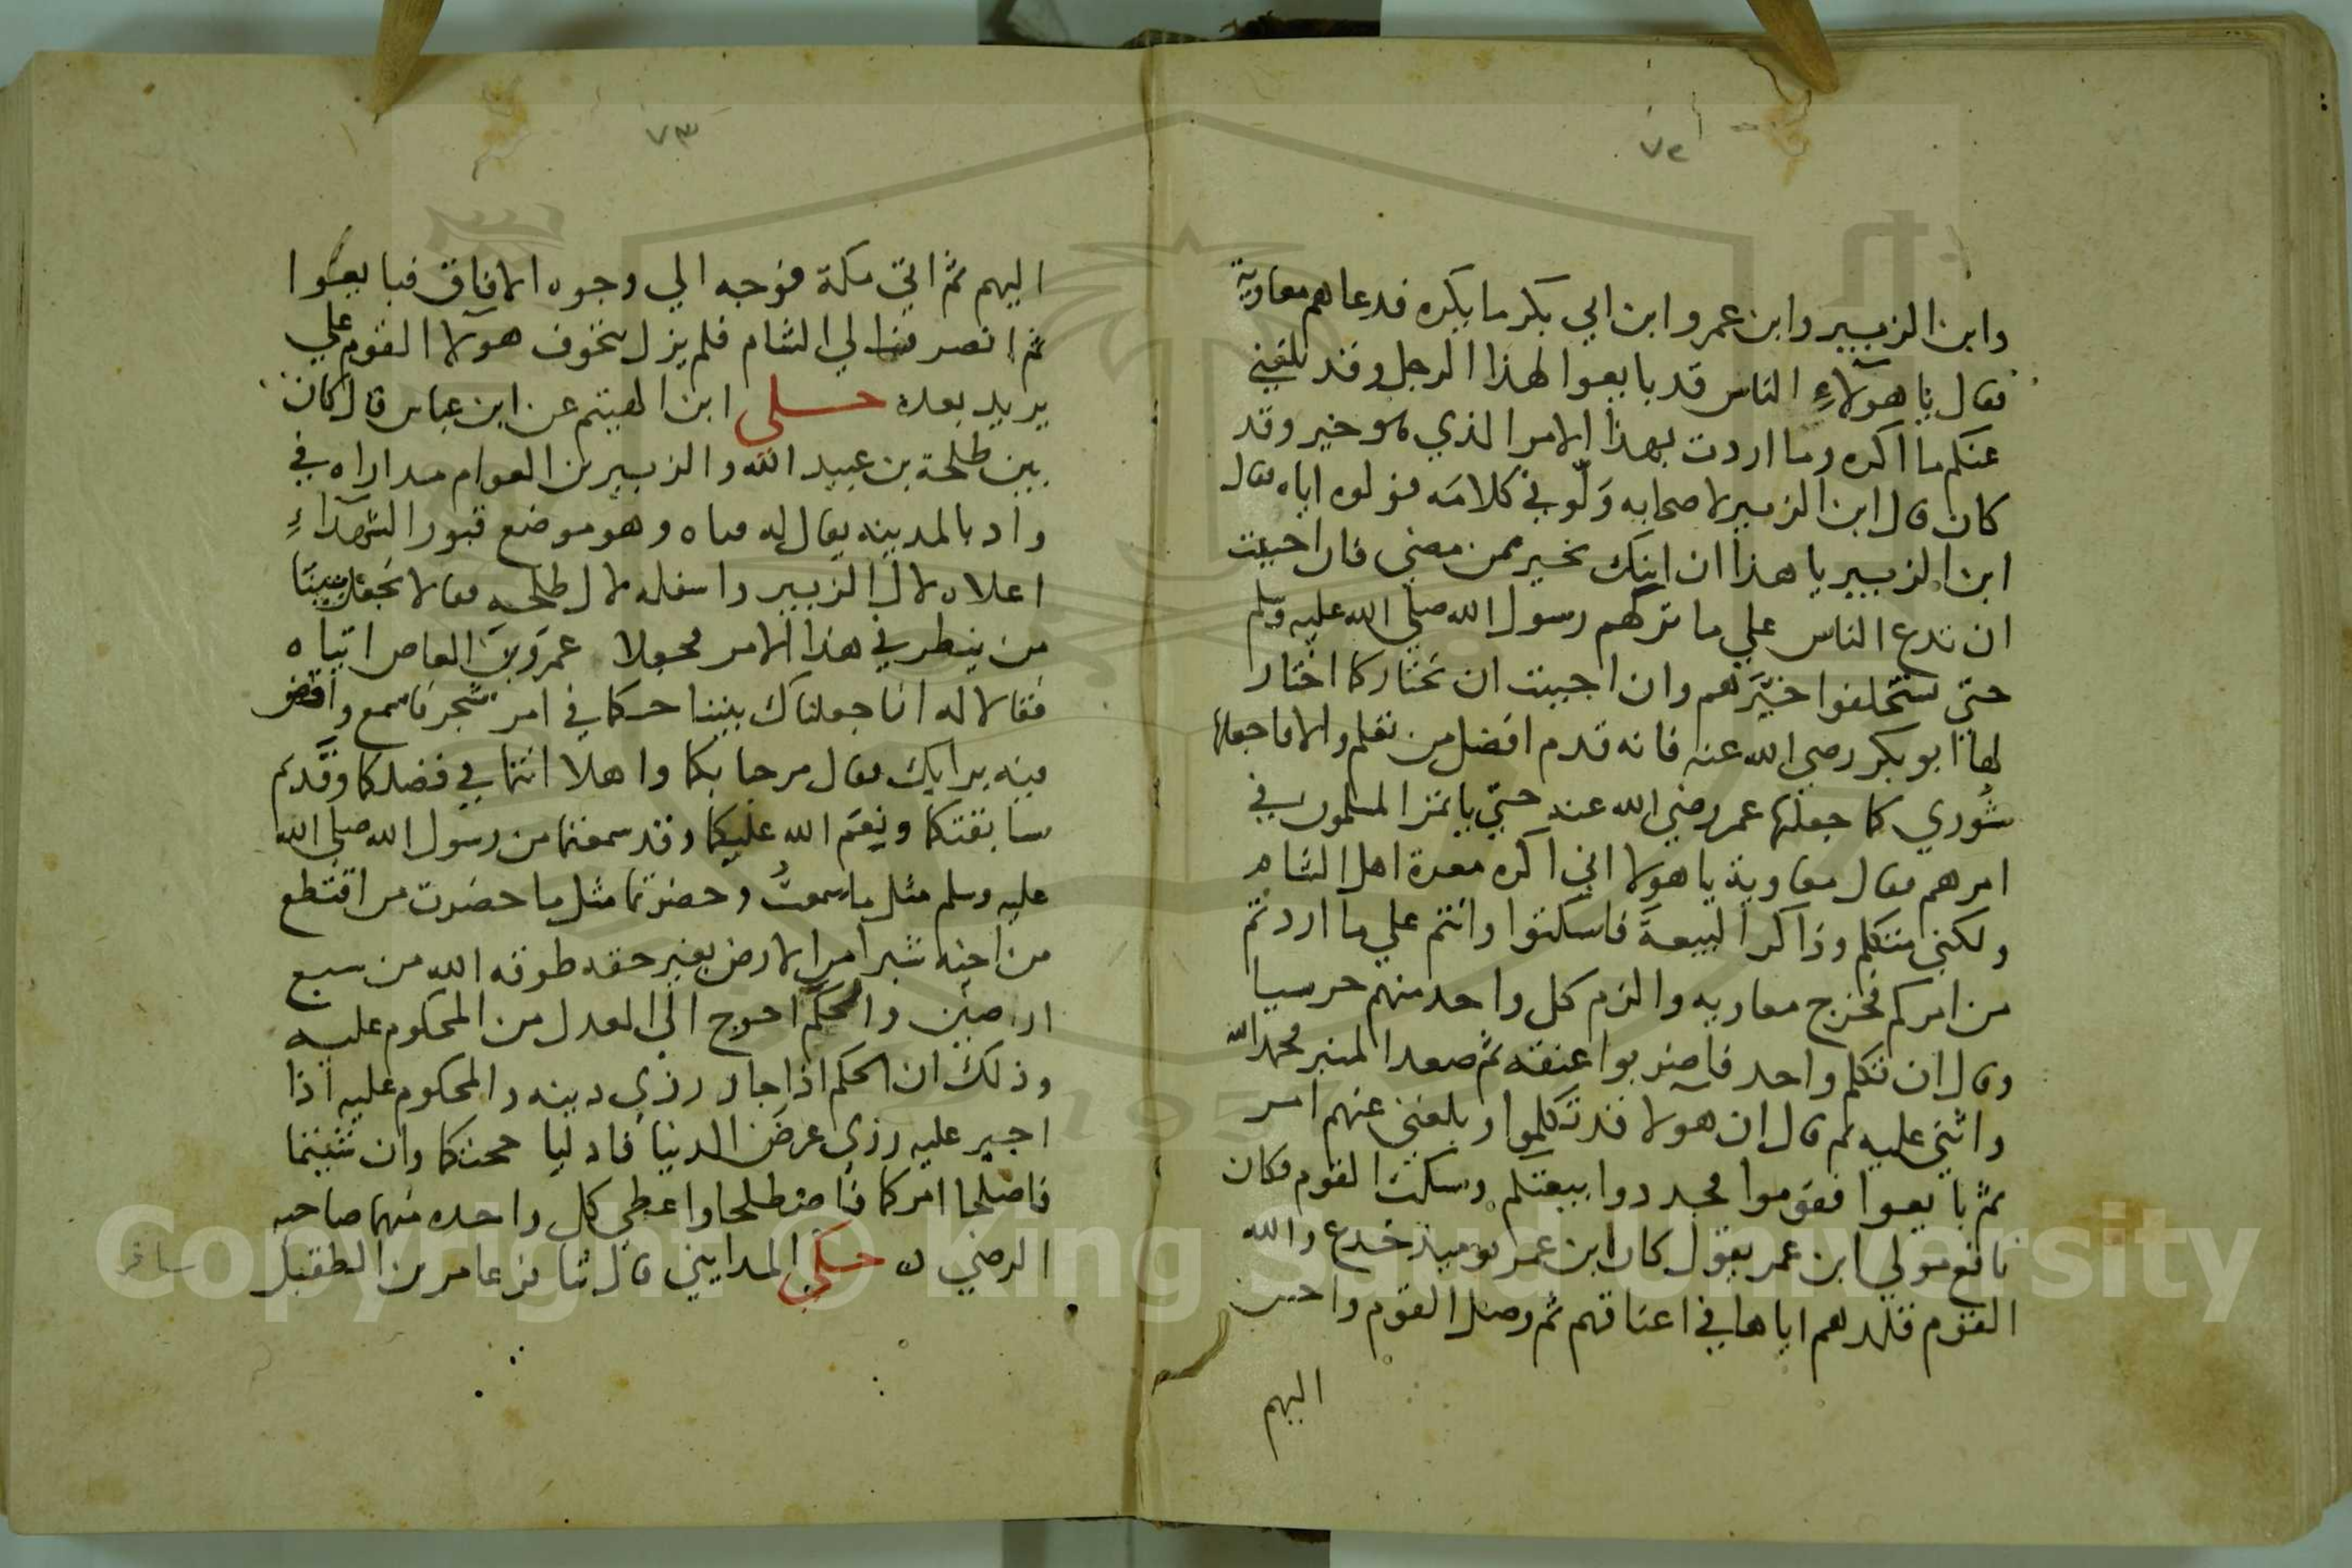 ٧٢
وابن الزبير وابن عمر وابن ابي بكر ما يكره فدعاهم معاوية
فقال يا هولاءِ الناس قد بايعوا لهذا الرجل وقد بلغني
عنكم ما اكره وما اردت بهذا الامر الذي هو خير وقد
كان قال ابن الزبير لاصحابه وَلّوني كلامَه فولوه اياه فقال
ابن الزبير يا هذا ان ابنك بخير ممن مضي فان احببت
ان تدع الناس علي ما تركهم رسول الله صلي الله عليه وسلم
حتي يستخلفوا خيّرَهم وان احببت ان تختار كما اختار
لها ابو بكر رضي الله عنه فانه قدم افضل من تعلم والا فاجعلها
شُوري كما جعلها عمر رضي الله عنه حتي ياتمر المسلمون في
امرهم فقال معاوية يا هولا اني اكره معرة اهل الشام
ولكني متكلم وذاكر البيعةَ فاسكتوا وانتم علي ما اردتم
من امركم فخرج معاويه والزم كل واحد منهم حرسيا
وقال ان تكلم واحد فاضربوا عنقه ثم صعد المنبر فحمد الله
واثني عليه ثم قال ان هولآ قد تكلموا وبلغني عنهم امر
ثم بايعوا فقوموا فجددوا بيعتكم وسكت القوم فكان
نافع مولي ابن عمر يقول كان ابن عمر يوميذ خدع والله
القوم قلدهم اياها في اعناقهم ثم وصل القوم واحسن
اليهم
٧٣
اليهم ثم اتي مكة فوجه الي وجوه الافاق فبايعوا
ثم انصرف الي الشام فلم يزل يتخوف هولآ القوم علي
يزيد بعده حكي ابن الهيثم عن ابن عباس قال كان
بين طلحة بن عبيد الله والزبير بن العوام مداراه في
واد بالمدينه يقال له قناه وهو موضع قبور الشهدآءِ
اعلاه لال الزبير واسفله لال طلحه فقالا نجعل بيننَا
من ينظر في هذا الامر فجعلا عمَرو بنَ العاص اتياه
فقالا له انا جعلناك بيننا حكما في امر شجر فاسمع واقض
فيه برايك فقال مرحبا بكما واهلا انتما في فضلكما وقَديم
سابقتكما ونِعَم الله عليكما وقد سمعتما من رسول الله صلي الله
عليه وسلم مثل ما سمعتُ وحضرتما مثل ما حضرت من اقتطع
من اخيه شبرا من الارض بغير حقه طوقه الله من سبع
ارضين والحَكَم احوج الي العدل من المحكوم عليه
وذلك ان الحكم اذا جار رزي دينه والمحكوم عليه اذا
اجير عليه رزي عرضَ الدنيا فادليا حجتكما وان شيتما
فاصلحا امركما فاصطلحا واعطي كل واحد منهما صاحبه
الرضي ن حكي المدايني قال سافر عامر بن الطفيل
سافر